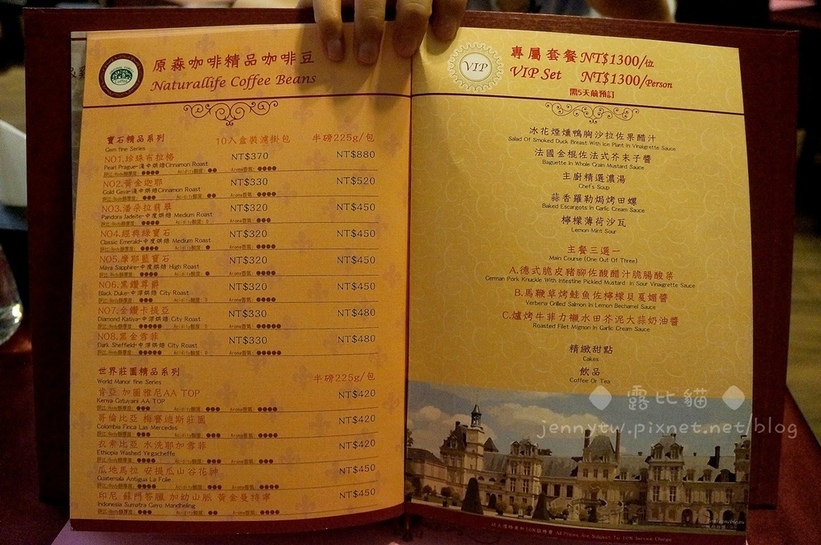 原森咖啡精品咖啡豆
Naturallife Coffee Beans
寶石精品系列 10入盒裝濾掛包 半磅225g/包
Gem fine Series
NO1.珍珠布拉格 NT$370 NT$880
Pearl Prague-淺中烘焙Cinnamon Roast
NO2.黃金迦耶 NT$330 NT$520
Gold Gaya-淺中烘焙Cinnamon Roast
NO3.潘朵拉翡翠 NT$320 NT$450
Pandora Jadeite-中度烘焙 Medium Roast
NO4.經典綠寶石 NT$320 NT$450
Classic Emerald-中度烘焙 Medium Roast
NO5.摩耶藍寶石 NT$320 NT$450
Maya Sapphire-中度烘焙 High Roast
NO6.黑鑽尊爵 NT$320 NT$450
Black Duke-中深烘焙 City Roast
NO7.金鑽卡提亞 NT$330 NT$480
Diamond Katiya-中深烘焙 City Roast
NO8.黑金雪菲 NT$330 NT$480
Dark Sheffield-中深烘焙 City Roast
世界莊園精品系列 半磅225g/包
World Manor fine Series
肯亞 加圖雅尼AA TOP NT$420
Kenya Gatuyaini AA TOP
哥倫比亞 梅賽迪斯莊園 NT$420
Colombia Finca Las Mercedes
衣索比亞 水洗耶加雪菲 NT$420
Ethiopia Washed Yirgacheffe
瓜地馬拉 安提瓜山谷花神 NT$450
Guatemala Antigua La Folie
印尼 蘇門答臘 加幼山脈 黃金曼特寧 NT$450
Indonesia Sumatra Gayo Mandheling
VIP
專屬套餐 NT$1300/位
VIP Set NT$1300/Person
需5天前預訂
冰花煙燻鴨胸沙拉佐果醋汁
Salad Of Smoked Duck Breast With Ice Plant In Vinaigrette Sauce
法國金棍佐法式芥末子醬
Baguette In Whole Grain Mustard Sauce
主廚精選濃湯
Chef's Soup
蒜香羅勒焗烤田螺
Baked Escargots In Garlic Cream Sauce
檸檬薄荷沙瓦
Lemon Mint Sour
主餐三選一
Main Course (One Out Of Three)
A.德式脆皮豬腳佐酸醋汁脆腸酸菜
German Pork Knuckle With Intestine Pickled Mustard In Sour Vinaigrette Sauce
B.馬鞭草烤鮭魚佐檸檬貝夏媚醬
Verbena Grilled Salmon In Lemon Bechamel Sauce
C.爐烤牛菲力襯水田芥泥大蒜奶油醬
Roasted Filet Mignon In Garlic Cream Sauce
精緻甜點
Cakes
飲品
Coffee Or Tea
露比貓
jennytw.pixnet.net/blog